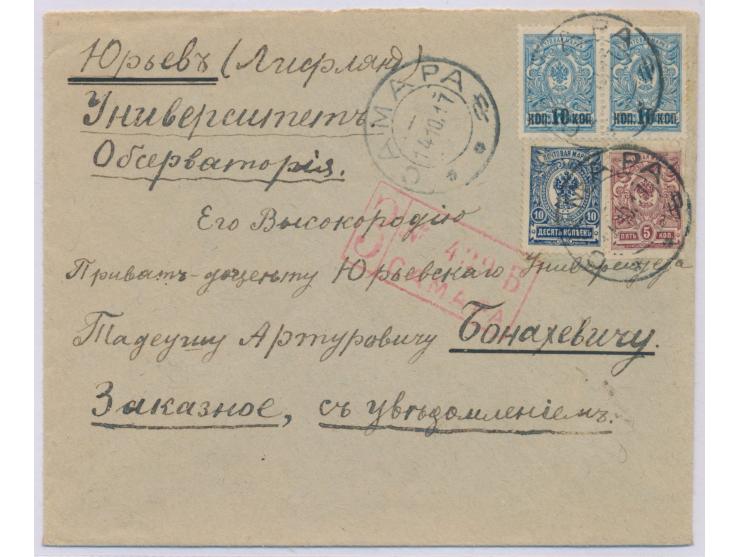 Юрьевъ (Лифлянд)
Университетъ
Обсерваторія.
Его Высокородію
Приватъ-доценту Юрьевскаго Университета
Тадеушу Артуровичу Бонахевичу.
Заказное, съ увѣдомленіемъ.
САМАРА
14.10.17
ПОЧТОВАЯ МАРКА
КОП. 10 КОП.
КОП. 10 КОП.
10 10
ДЕСЯТЬ КОПѢЕКЪ
5
ПЯТЬ КОП.
САМАРА
З
№
В